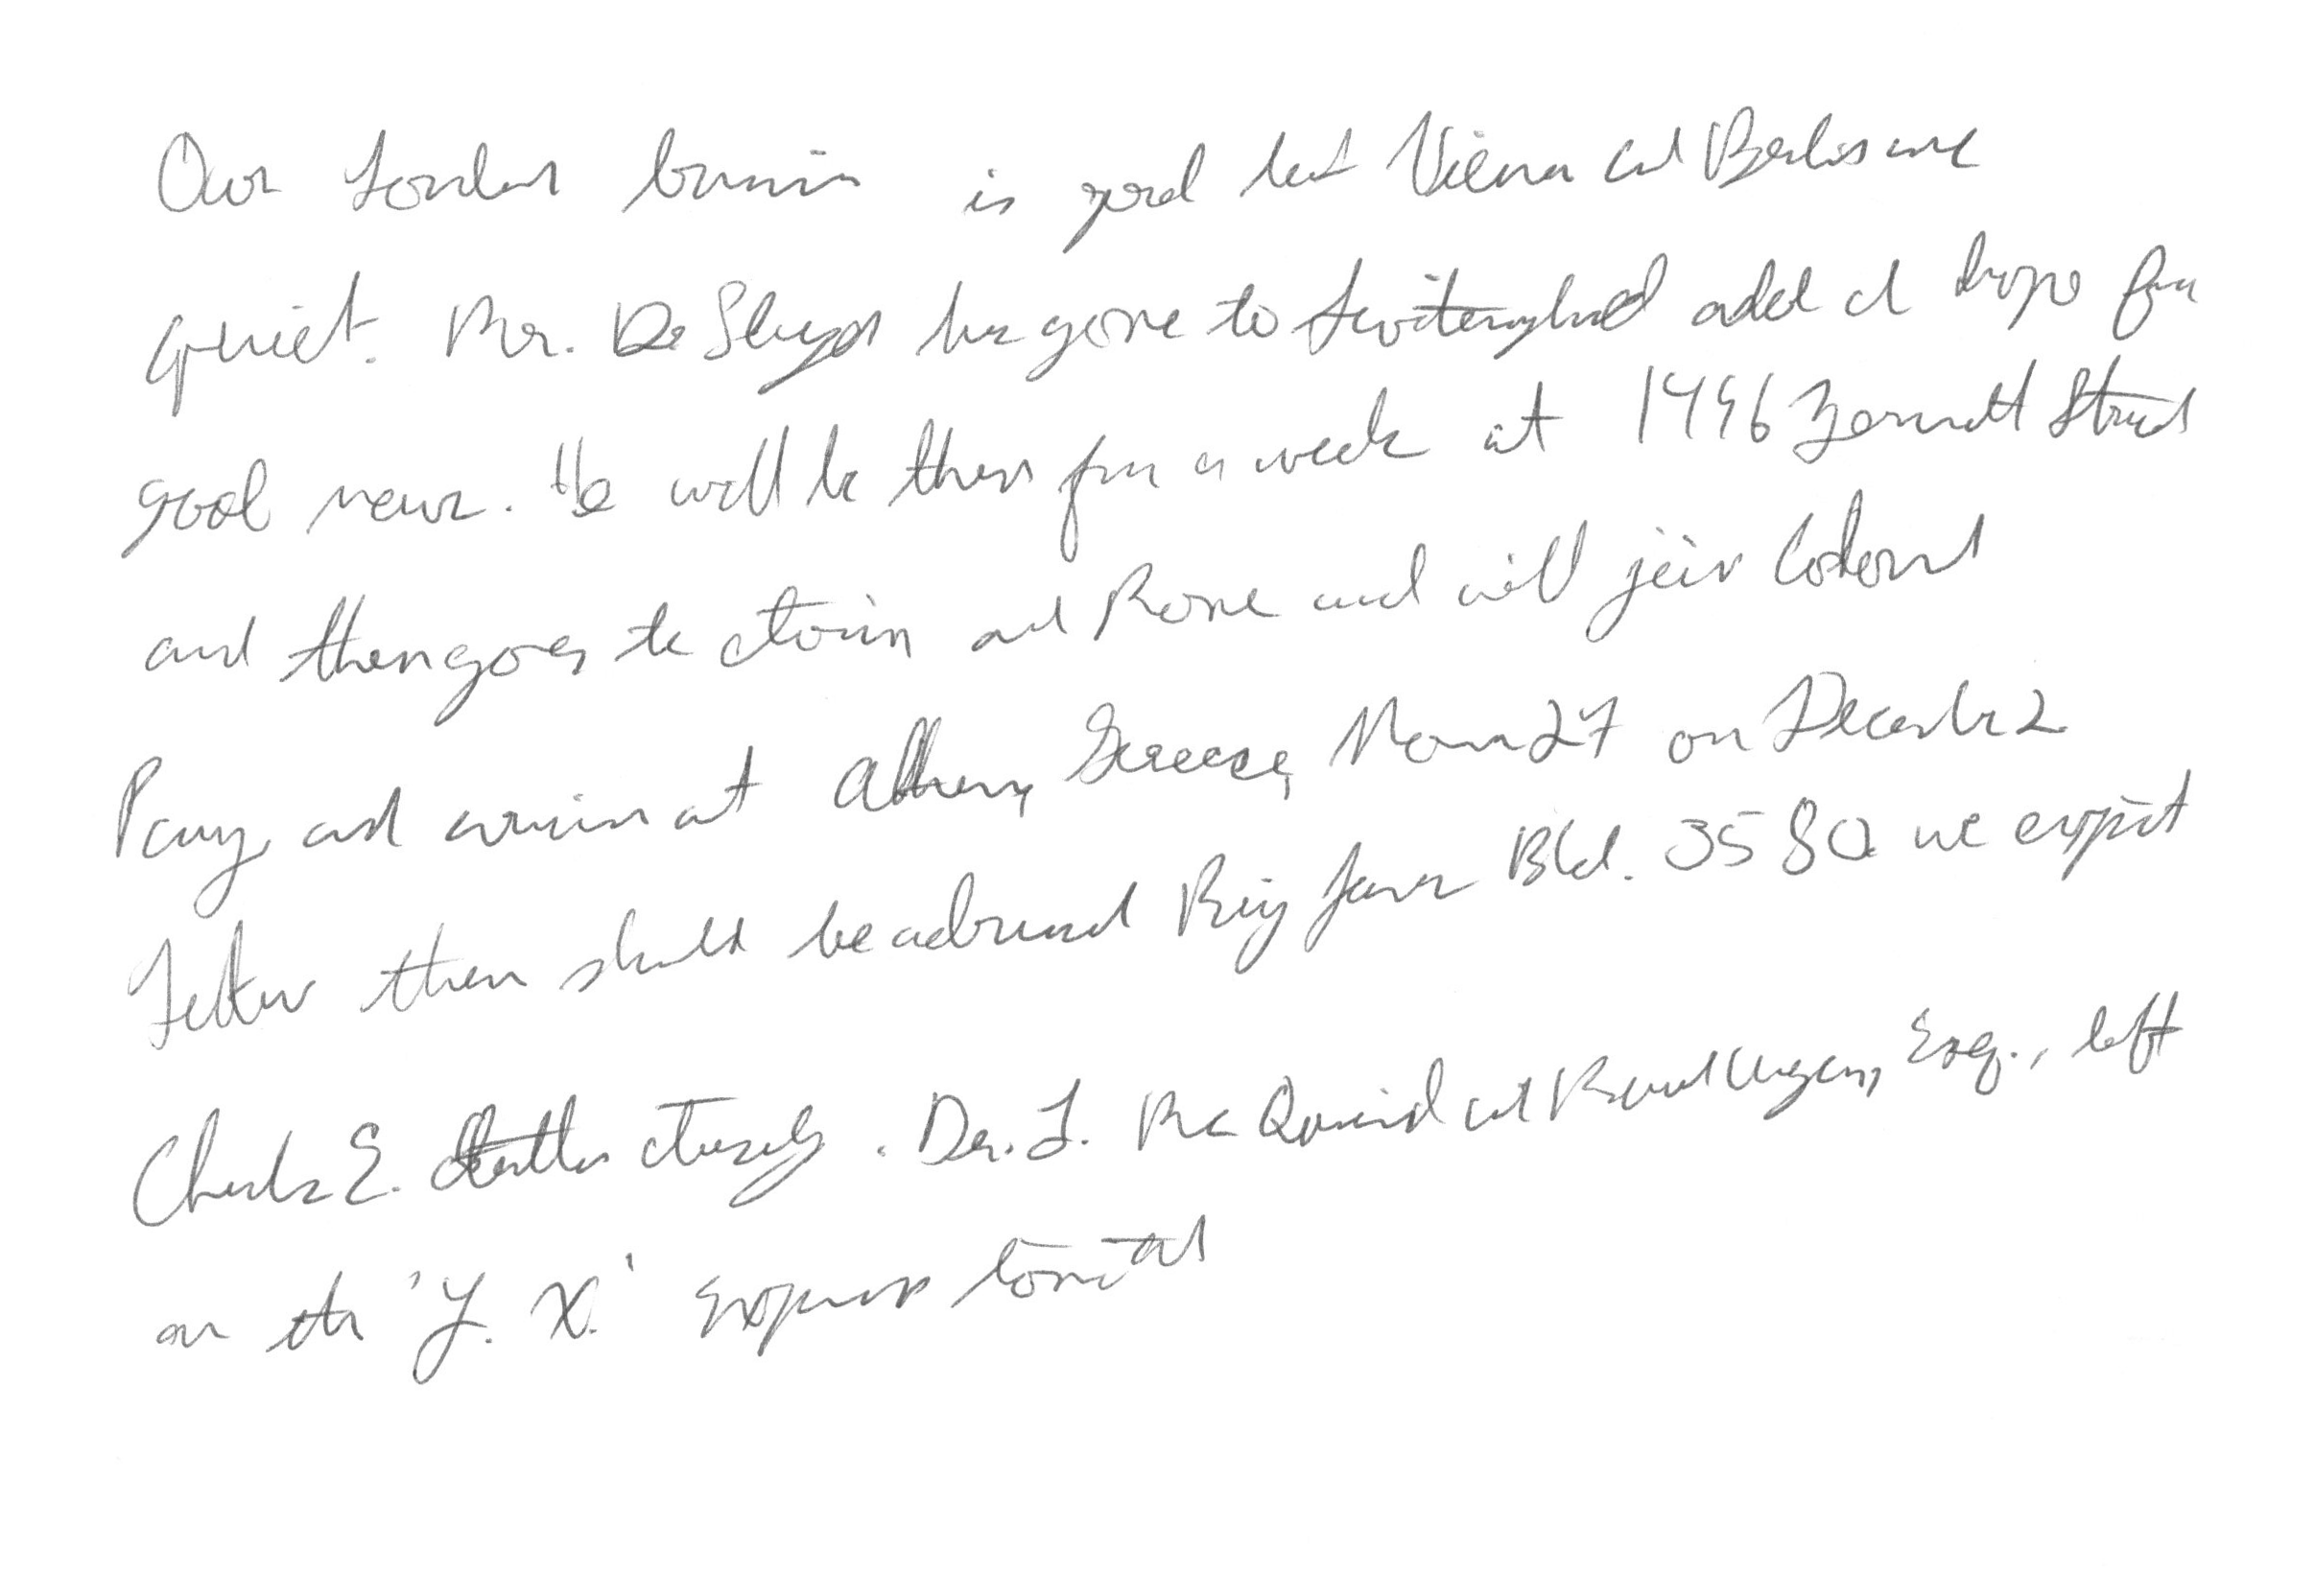 Our London business is good but Viena and Berlin are
quiet. Mr. D. Sloyd has gone to Switzerland and I hope for
good news. He will be there for a week at 1496 Zermott Street
and then goes to Turin and Rome and will join Colonel
Parry and arrive at Athens, Greece, Nov 27 or December 2
letters there should be addressed King James Bld. 3580 We expect
Charles E. Fuller Tuesday. Dr. L. McQuaid and Robert Unger, Esq., left
on the 'Y. X.' Express tonight